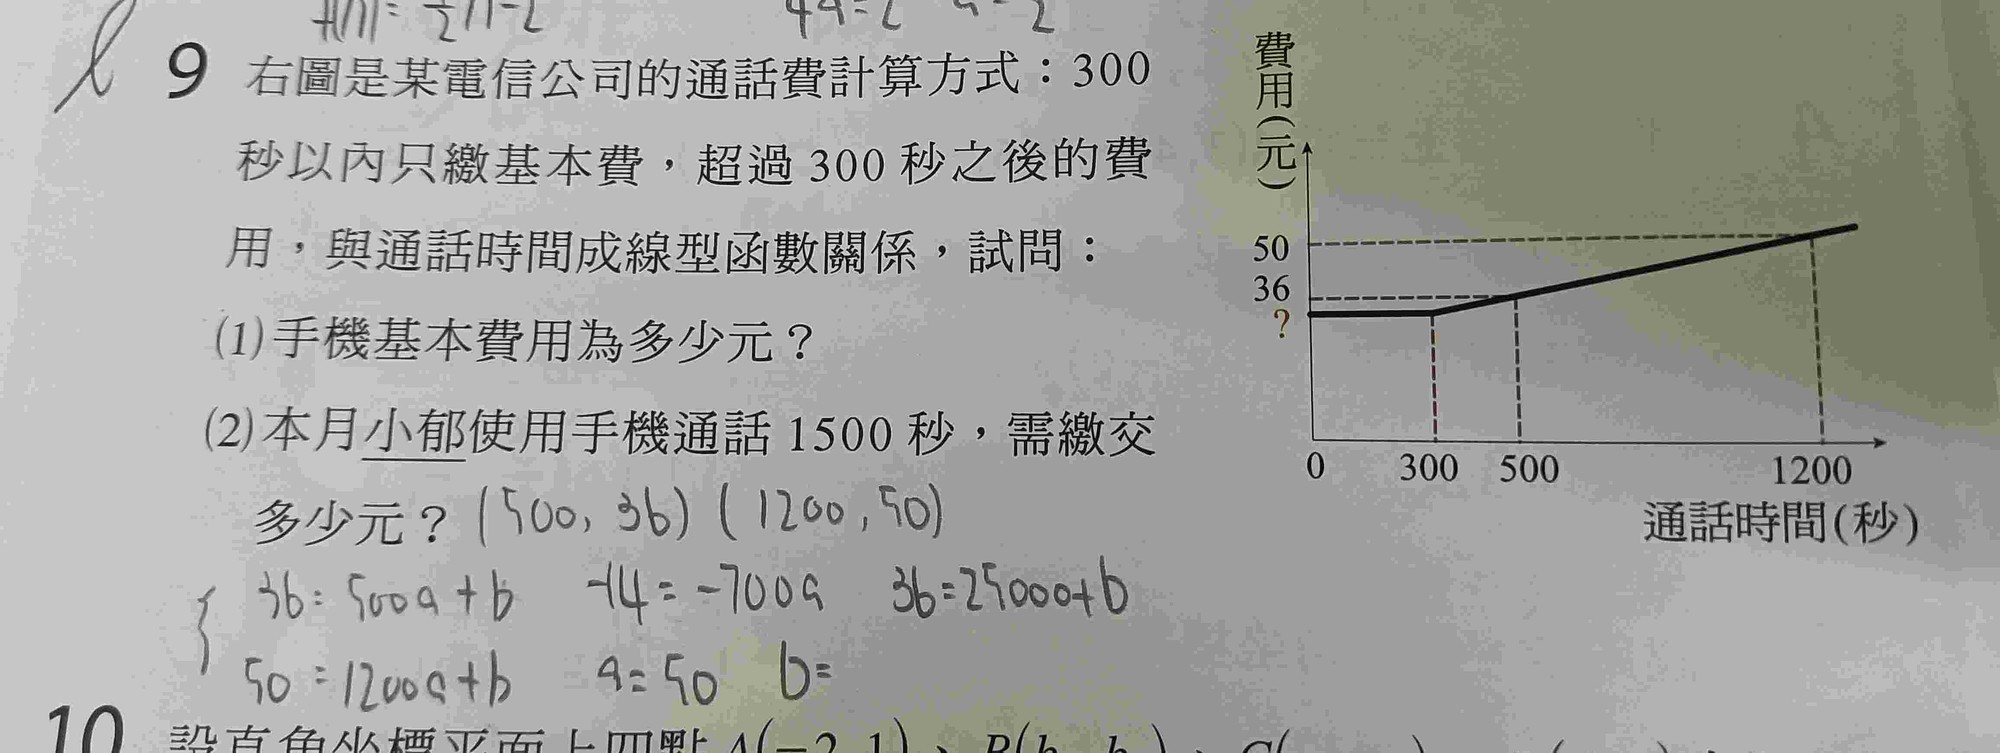 f(x)= 1/2 x-2
4a=2 a= 1/2
9 右圖是某電信公司的通話費計算方式：300
秒以內只繳基本費，超過 300 秒之後的費
用，與通話時間成線型函數關係，試問：
(1)手機基本費用為多少元？
(2)本月小郁使用手機通話 1500 秒，需繳交
多少元？ (500, 36) (1200, 50)
36= 500a+b -14=-700a 36=25000+b
50=1200a+b a=50 b=
費用(元)
50
36
?
0 300 500 1200
通話時間(秒)
10 設直角坐標平面上四點 A(−2, 1)、B(